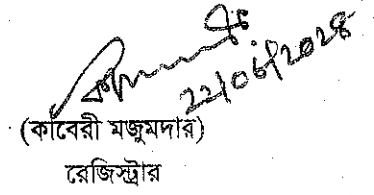 22/06/2025
(কাবেরী মজুমদার)
রেজিস্ট্রার